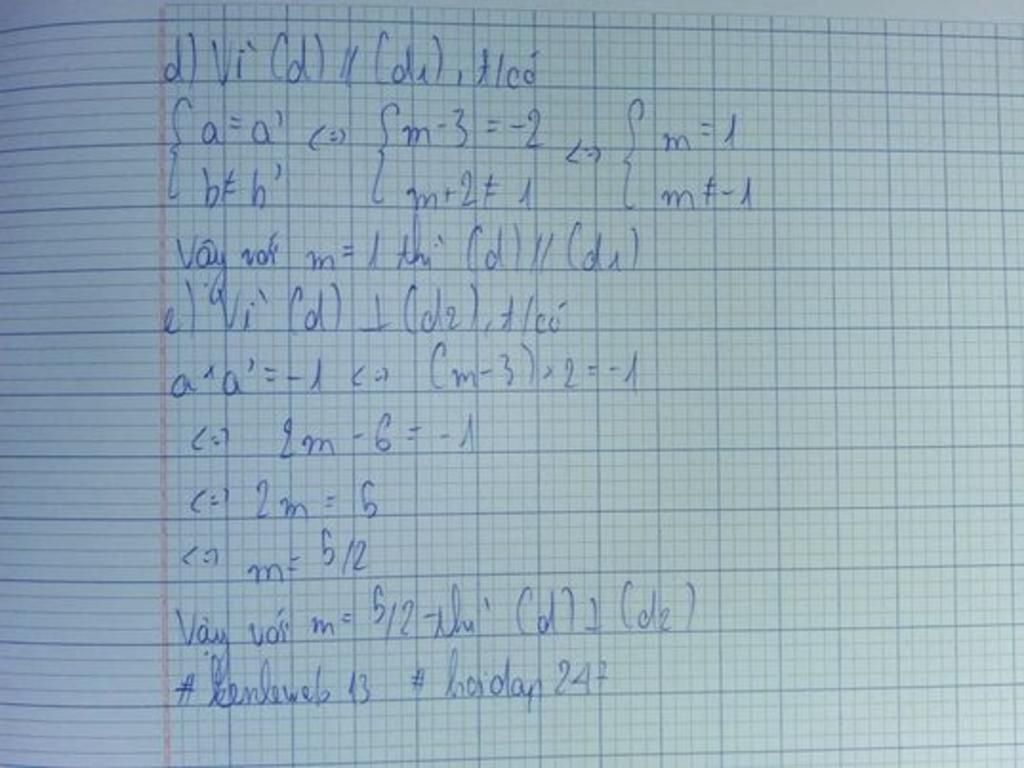 d) Vì (d) // (d1), t/có
{ a = a' <=> { m - 3 = -2 <=> { m = 1
{ b ≠ b' { m + 2 ≠ 1 { m ≠ -1
Vậy với m = 1 thì (d) // (d1)
e) Vì (d) ⊥ (d2), t/có
a . a' = -1 <=> (m - 3) . 2 = -1
<=> 2m - 6 = -1
<=> 2m = 5
<=> m = 5/2
Vậy với m = 5/2 thì (d) ⊥ (d2)
# 13 # hoidap 247